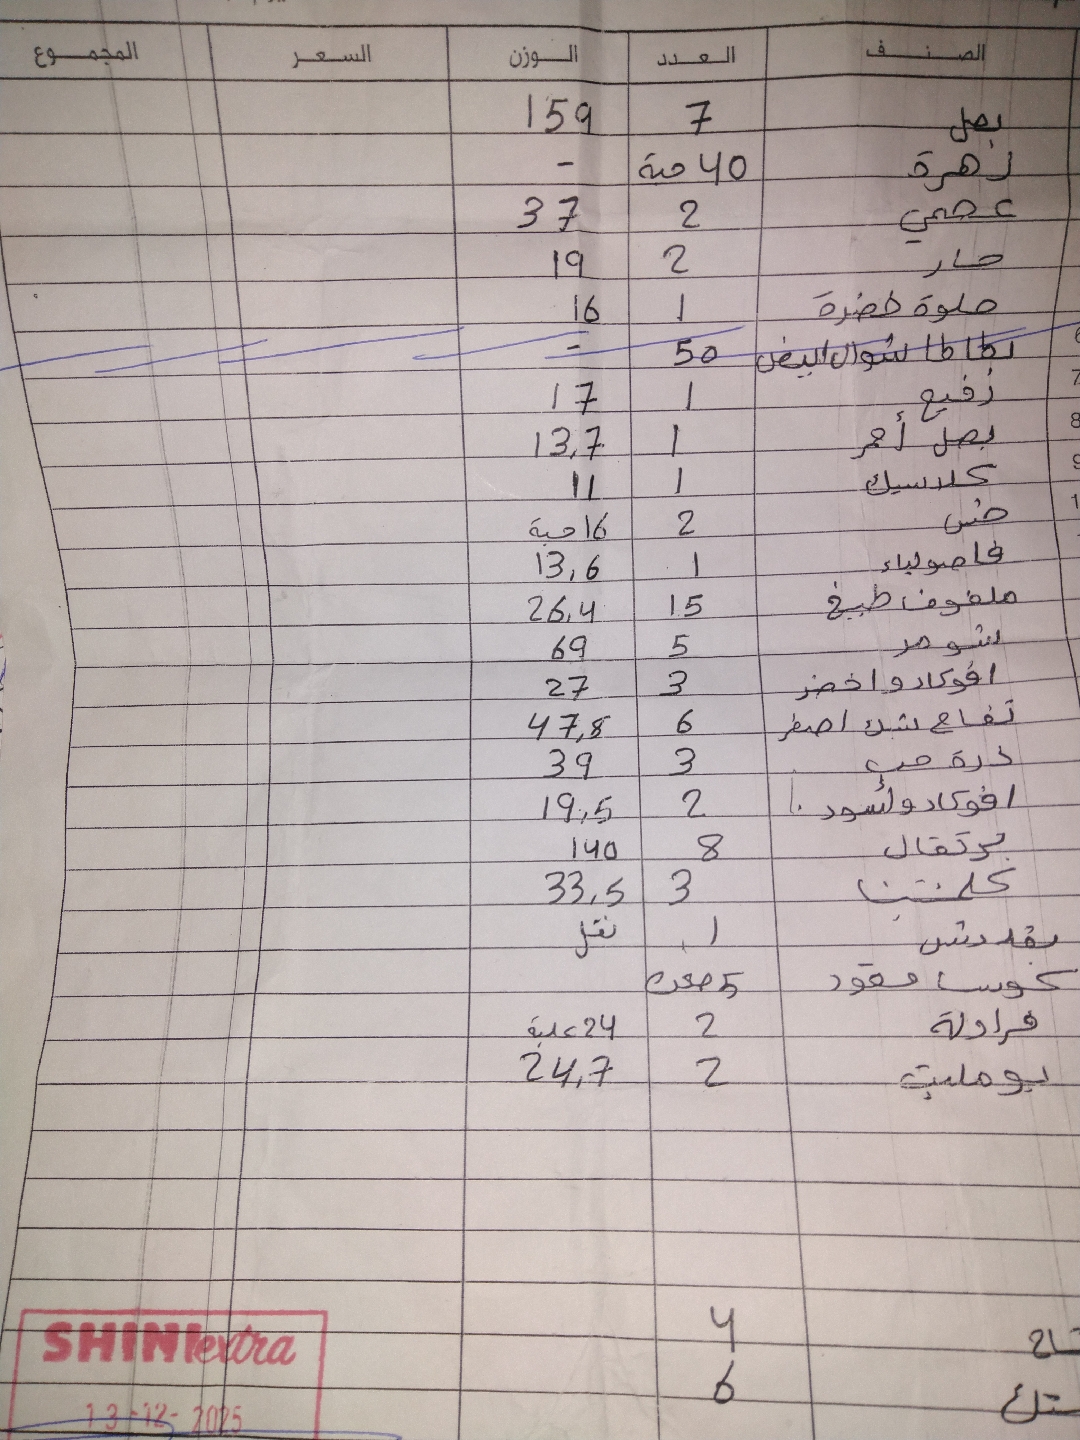 الصنف العدد الوزن السعر المجموع
بصل 7 159
زهرة 40 حبة -
عجمي 2 37
حار 2 19
حلوة خضرة 1 16
بطاطا شوال ابيض 50 -
7 رفيع 1 17
8 بصل أحمر 1 13,7
9 كلاسيك 1 11
خس 2 16 حبة
فاصولياء 1 13,6
ملفوف طبيخ 15 26,4
شومر 5 69
افوكادو اخضر 3 27
تفاح اصفر 6 47,8
ذرة حب 3 39
افوكادو أسود 2 19,5
برتقال 8 140
كلمنتينا 3 33,5
بقدونس 1
كوسا 5
فراولة 2 24 علبة
بومليت 2 24,7
4
6
SHINI extra
13-12-2025